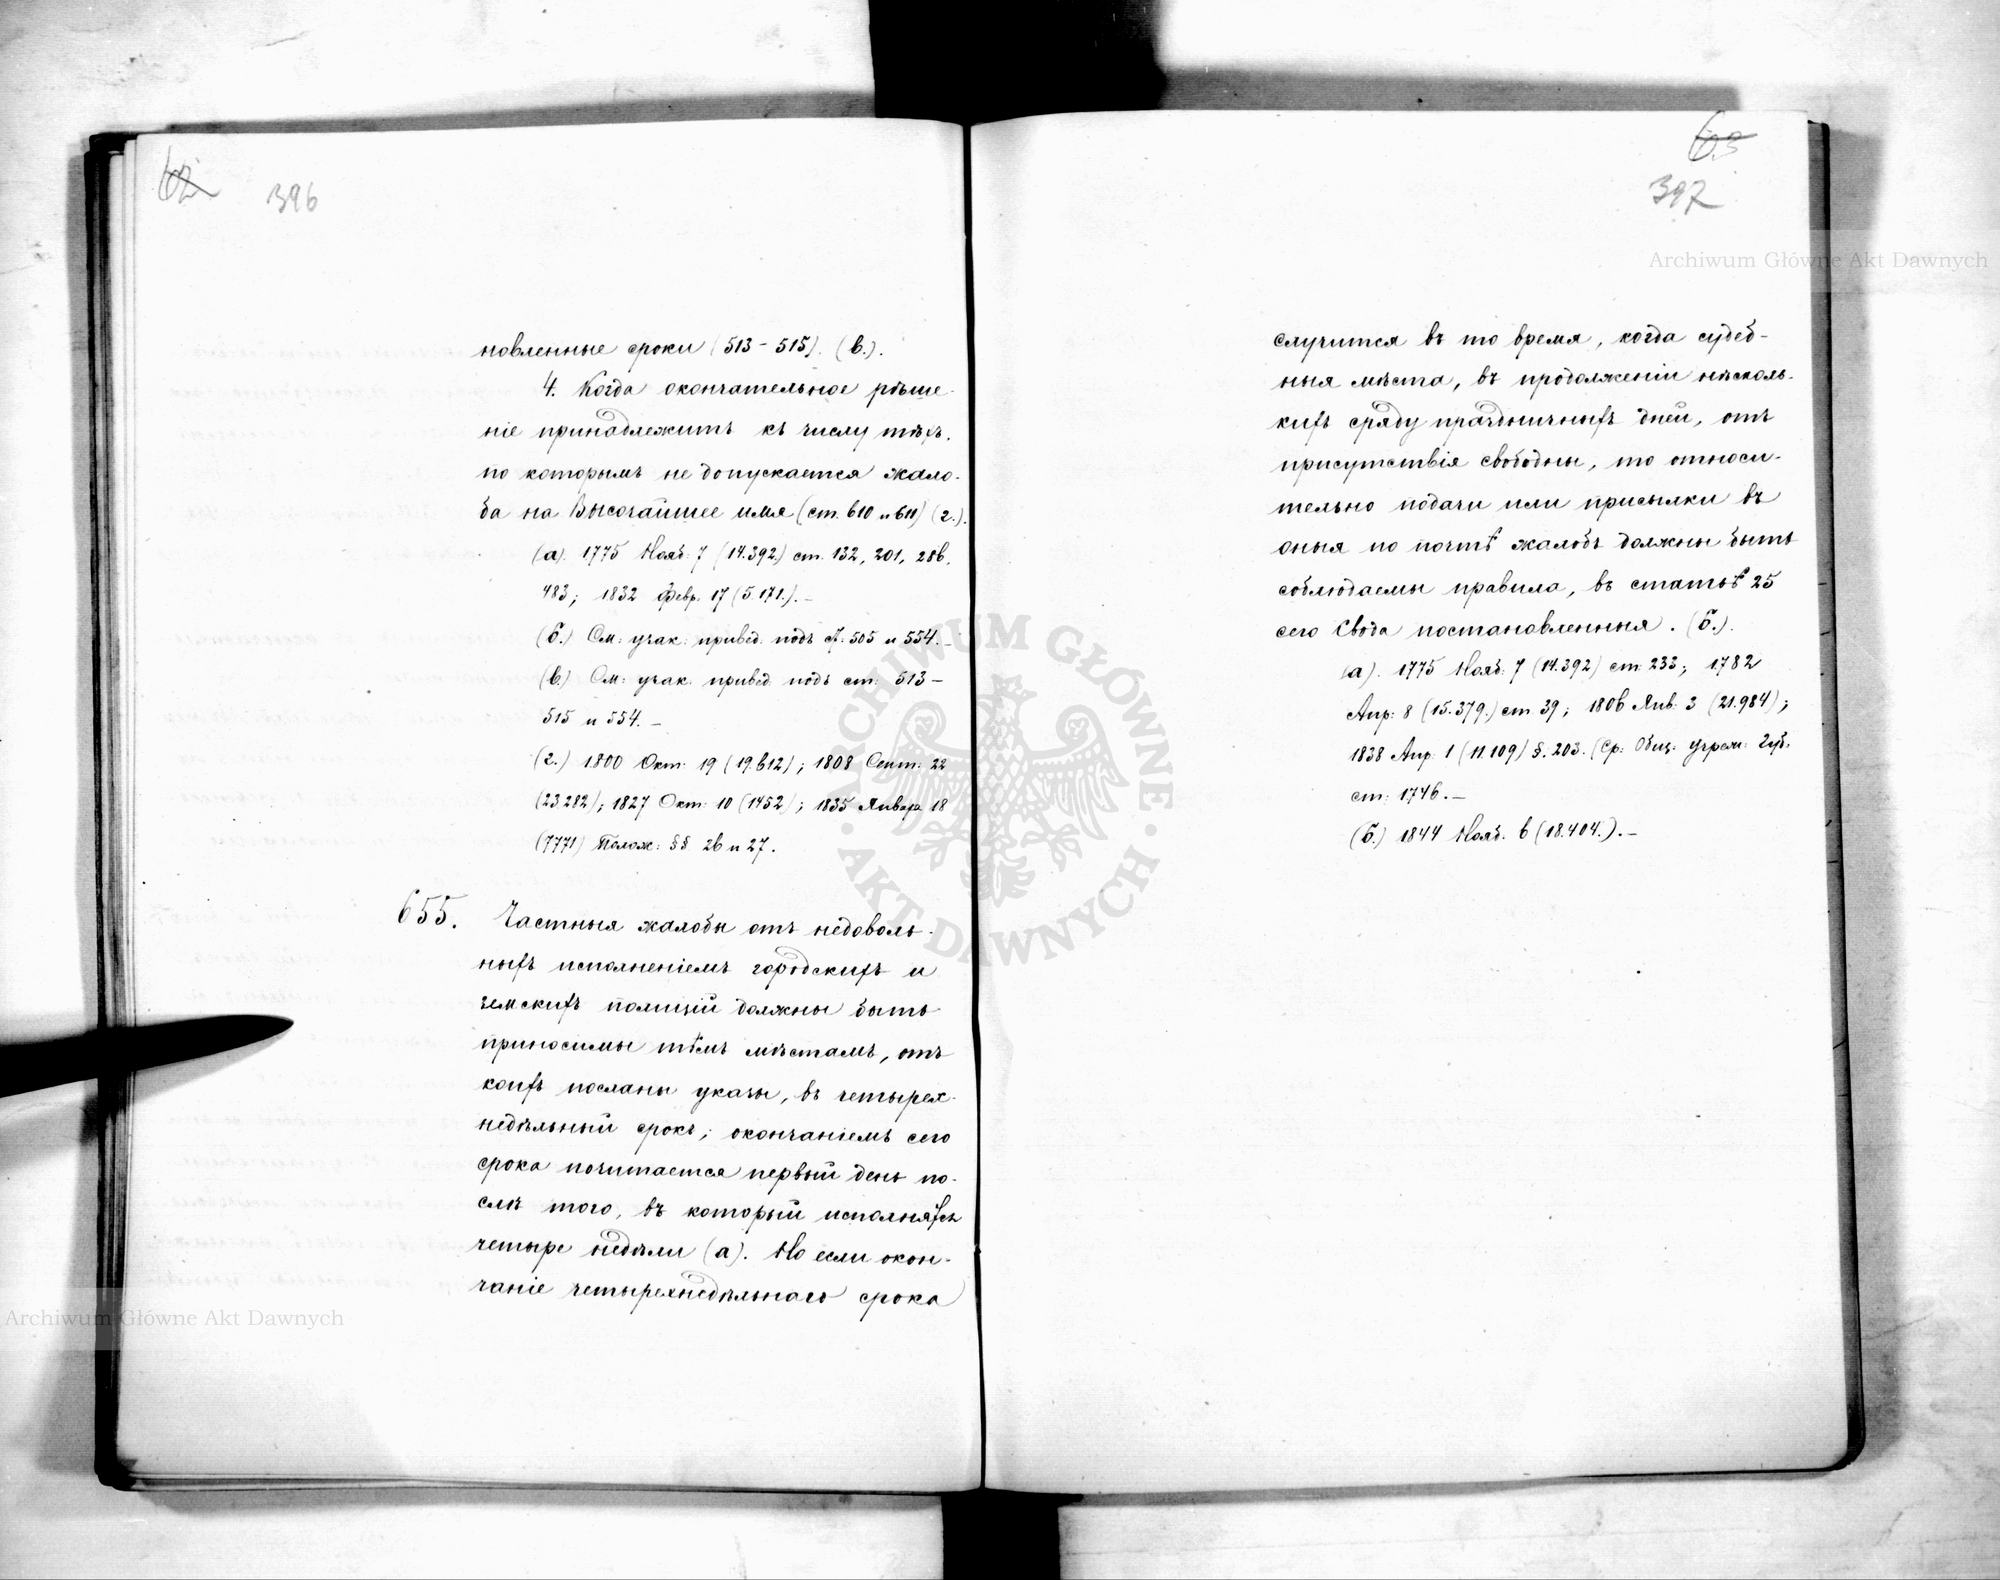 62 396
новленные сроки (513 – 515). (в.).
4. Когда окончательное рѣше-
ніе принадлежитъ къ числу тѣхъ,
по которымъ не допускается жало-
ба на Высочайшее имя (ст. 610 и 611) (г.).
(а). 1775 Нояб: 7 (14.392) ст. 132, 201, 286,
483; 1832 Февр. 17 (5.171.). –
(б.) См: указ: привед: подъ ст: 505 и 554. –
(в.) См: указ: привед: подъ ст: 513 –
515 и 554. –
(г.) 1800 Окт: 19 (19.612); 1808 Сент: 22
(23.282); 1827 Окт: 10 (1452); 1835 Января 18
(7771) Полож: §§ 26 и 27.
655. Частныя жалобы отъ недоволь-
ныхъ исполненіемъ городскихъ и
земскихъ полицій должны быть
приносимы тѣмъ мѣстамъ, отъ
коихъ посланы указы, въ четырех-
недѣльный срокъ; окончаніемъ сего
срока почитается первый день по-
слѣ того, въ который исполнятся
четыре недѣли (а). Но если окон-
чаніе четырехнедѣльнаго срока
63
397
случится въ то время, когда судеб-
ныя мѣста, въ продолженіи нѣсколь-
кихъ сряду праздничныхъ дней, отъ
присутствія свободны, то относи-
тельно подачи или присылки въ
оныя по почтѣ жалобъ должны быть
соблюдаемы правила, въ статьѣ 25
сего Свода постановленныя. (б.).
(а). 1775 Нояб: 7 (14.392) ст: 233; 1782
Апр: 8 (15.379.) ст. 39; 1806 Янв: 3 (21.984);
1838 Апр: 1 (11.109) §. 203. (Ср: Общ: учреж: Губ:
ст: 1746. –
(б.) 1844 Нояб: 6 (18.404.). –
Archiwum Główne Akt Dawnych
ARCHIWUM GŁÓWNE
AKT DAWNYCH
Archiwum Główne Akt Dawnych